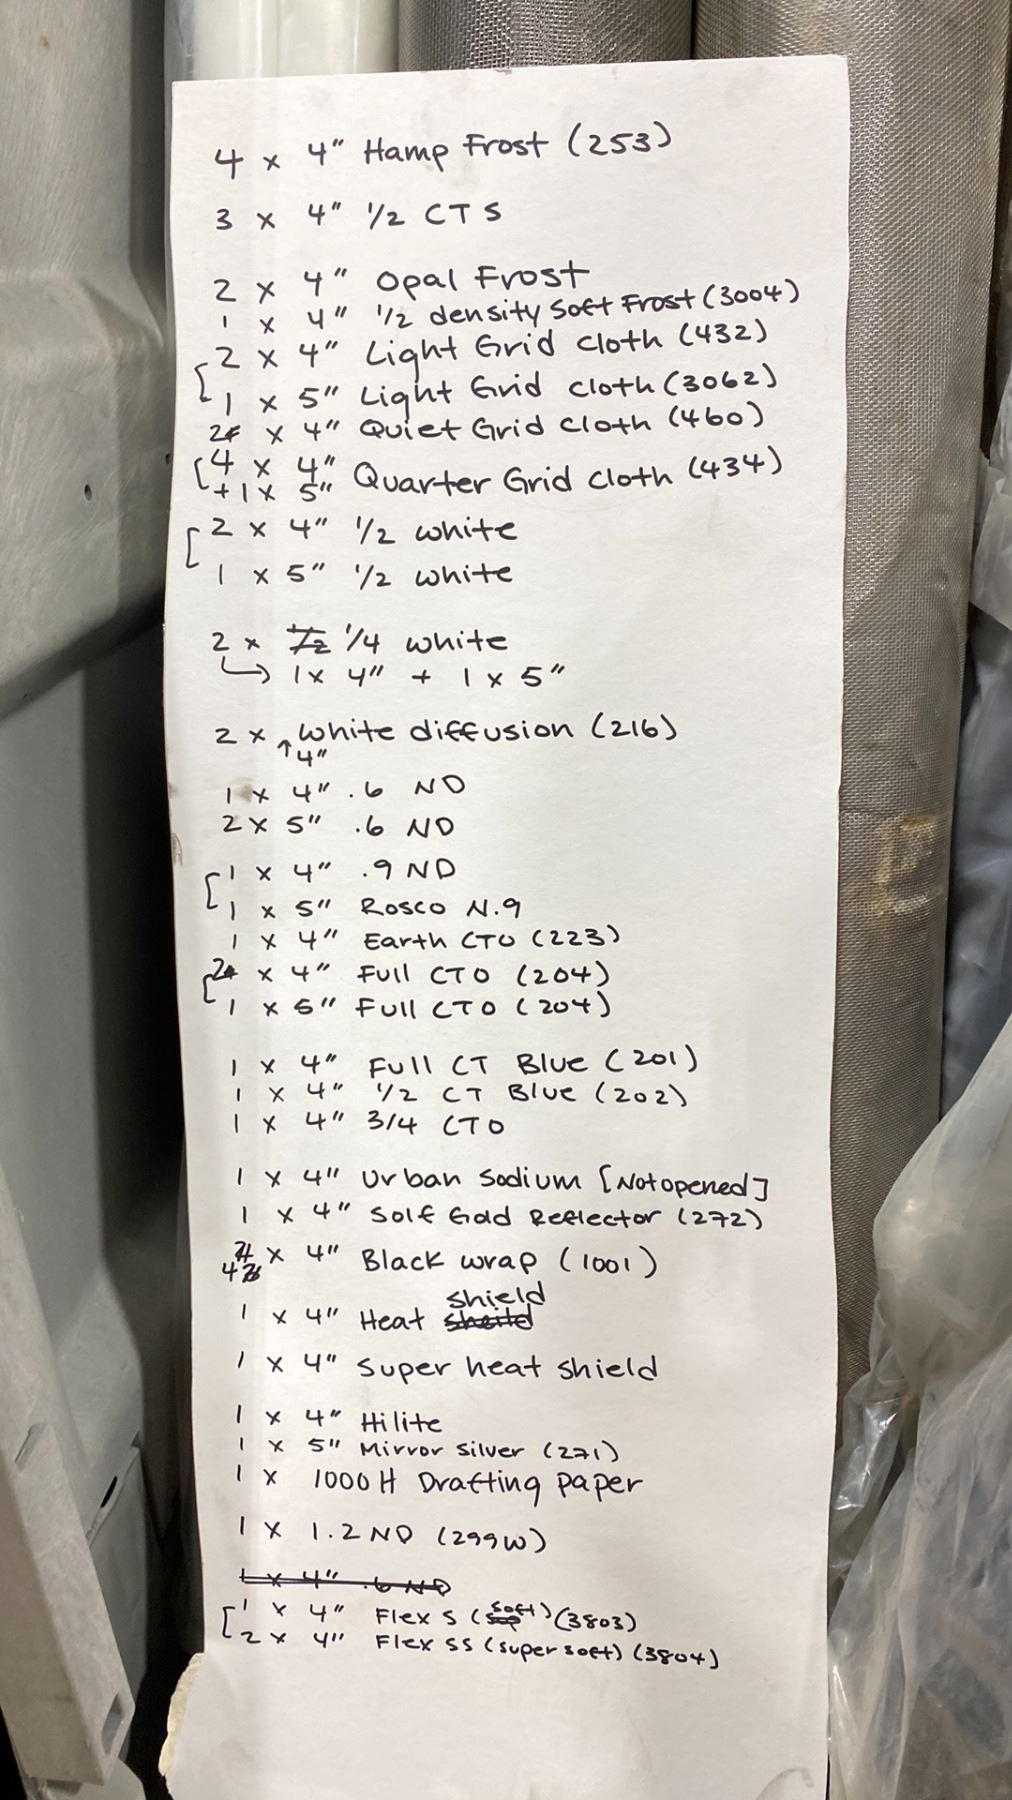 4 x 4" Hamp Frost (253)
3 x 4" 1/2 CTS
2 x 4" Opal Frost
1 x 4" 1/2 density Soft Frost (3004)
2 x 4" Light Grid Cloth (432)
1 x 5" Light Grid Cloth (3062)
2 x 4" Quiet Grid Cloth (460)
4 x 4"
+ 1 x 5" Quarter Grid Cloth (434)
2 x 4" 1/2 white
1 x 5" 1/2 white
2 x 1/2 1/4 white
1 x 4" + 1 x 5"
2 x white diffusion (216)
↑4"
1 x 4" .6 ND
2 x 5" .6 ND
1 x 4" .9 ND
1 x 5" Rosco N.9
1 x 4" Earth CTO (223)
2 x 4" Full CTO (204)
1 x 5" Full CTO (204)
1 x 4" Full CT Blue (201)
1 x 4" 1/2 CT Blue (202)
1 x 4" 3/4 CTO
1 x 4" Urban Sodium [Not opened]
1 x 4" Solf Gold Reflector (272)
x 4" Black wrap (1001)
4
shield
1 x 4" Heat sheild
1 x 4" Super heat shield
1 x 4" Hilite
1 x 5" Mirror Silver (271)
1 x 1000H Drafting paper
1 x 1.2 ND (299W)
1 x 4" .6 ND
1 x 4" Flex S (soft) (3803)
2 x 4" Flex SS (super soft) (3804)